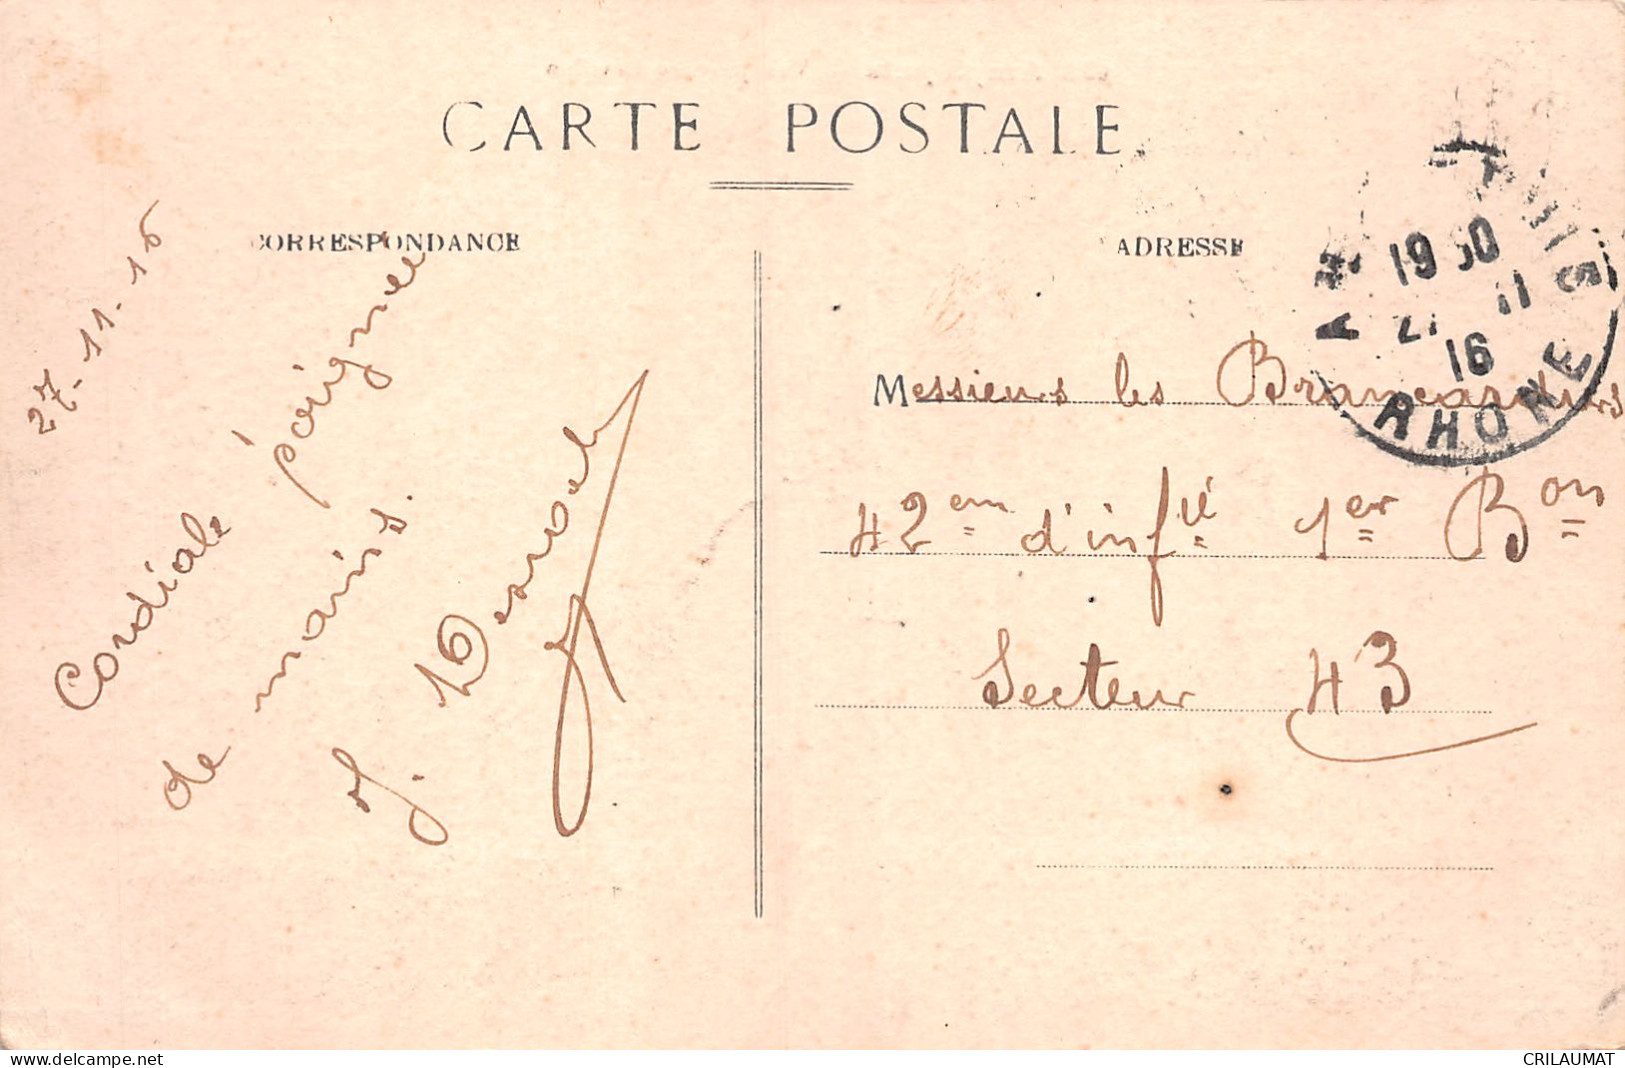 CARTE POSTALE
CORRESPONDANCE
ADRESSE
27-11-16
Cordiale poignée
de mains.
19 30
11
16
RHONE
Messieurs les Brancardiers
42em d'infie 1er Bon
Secteur 43
www.delcampe.net
CRILAUMAT